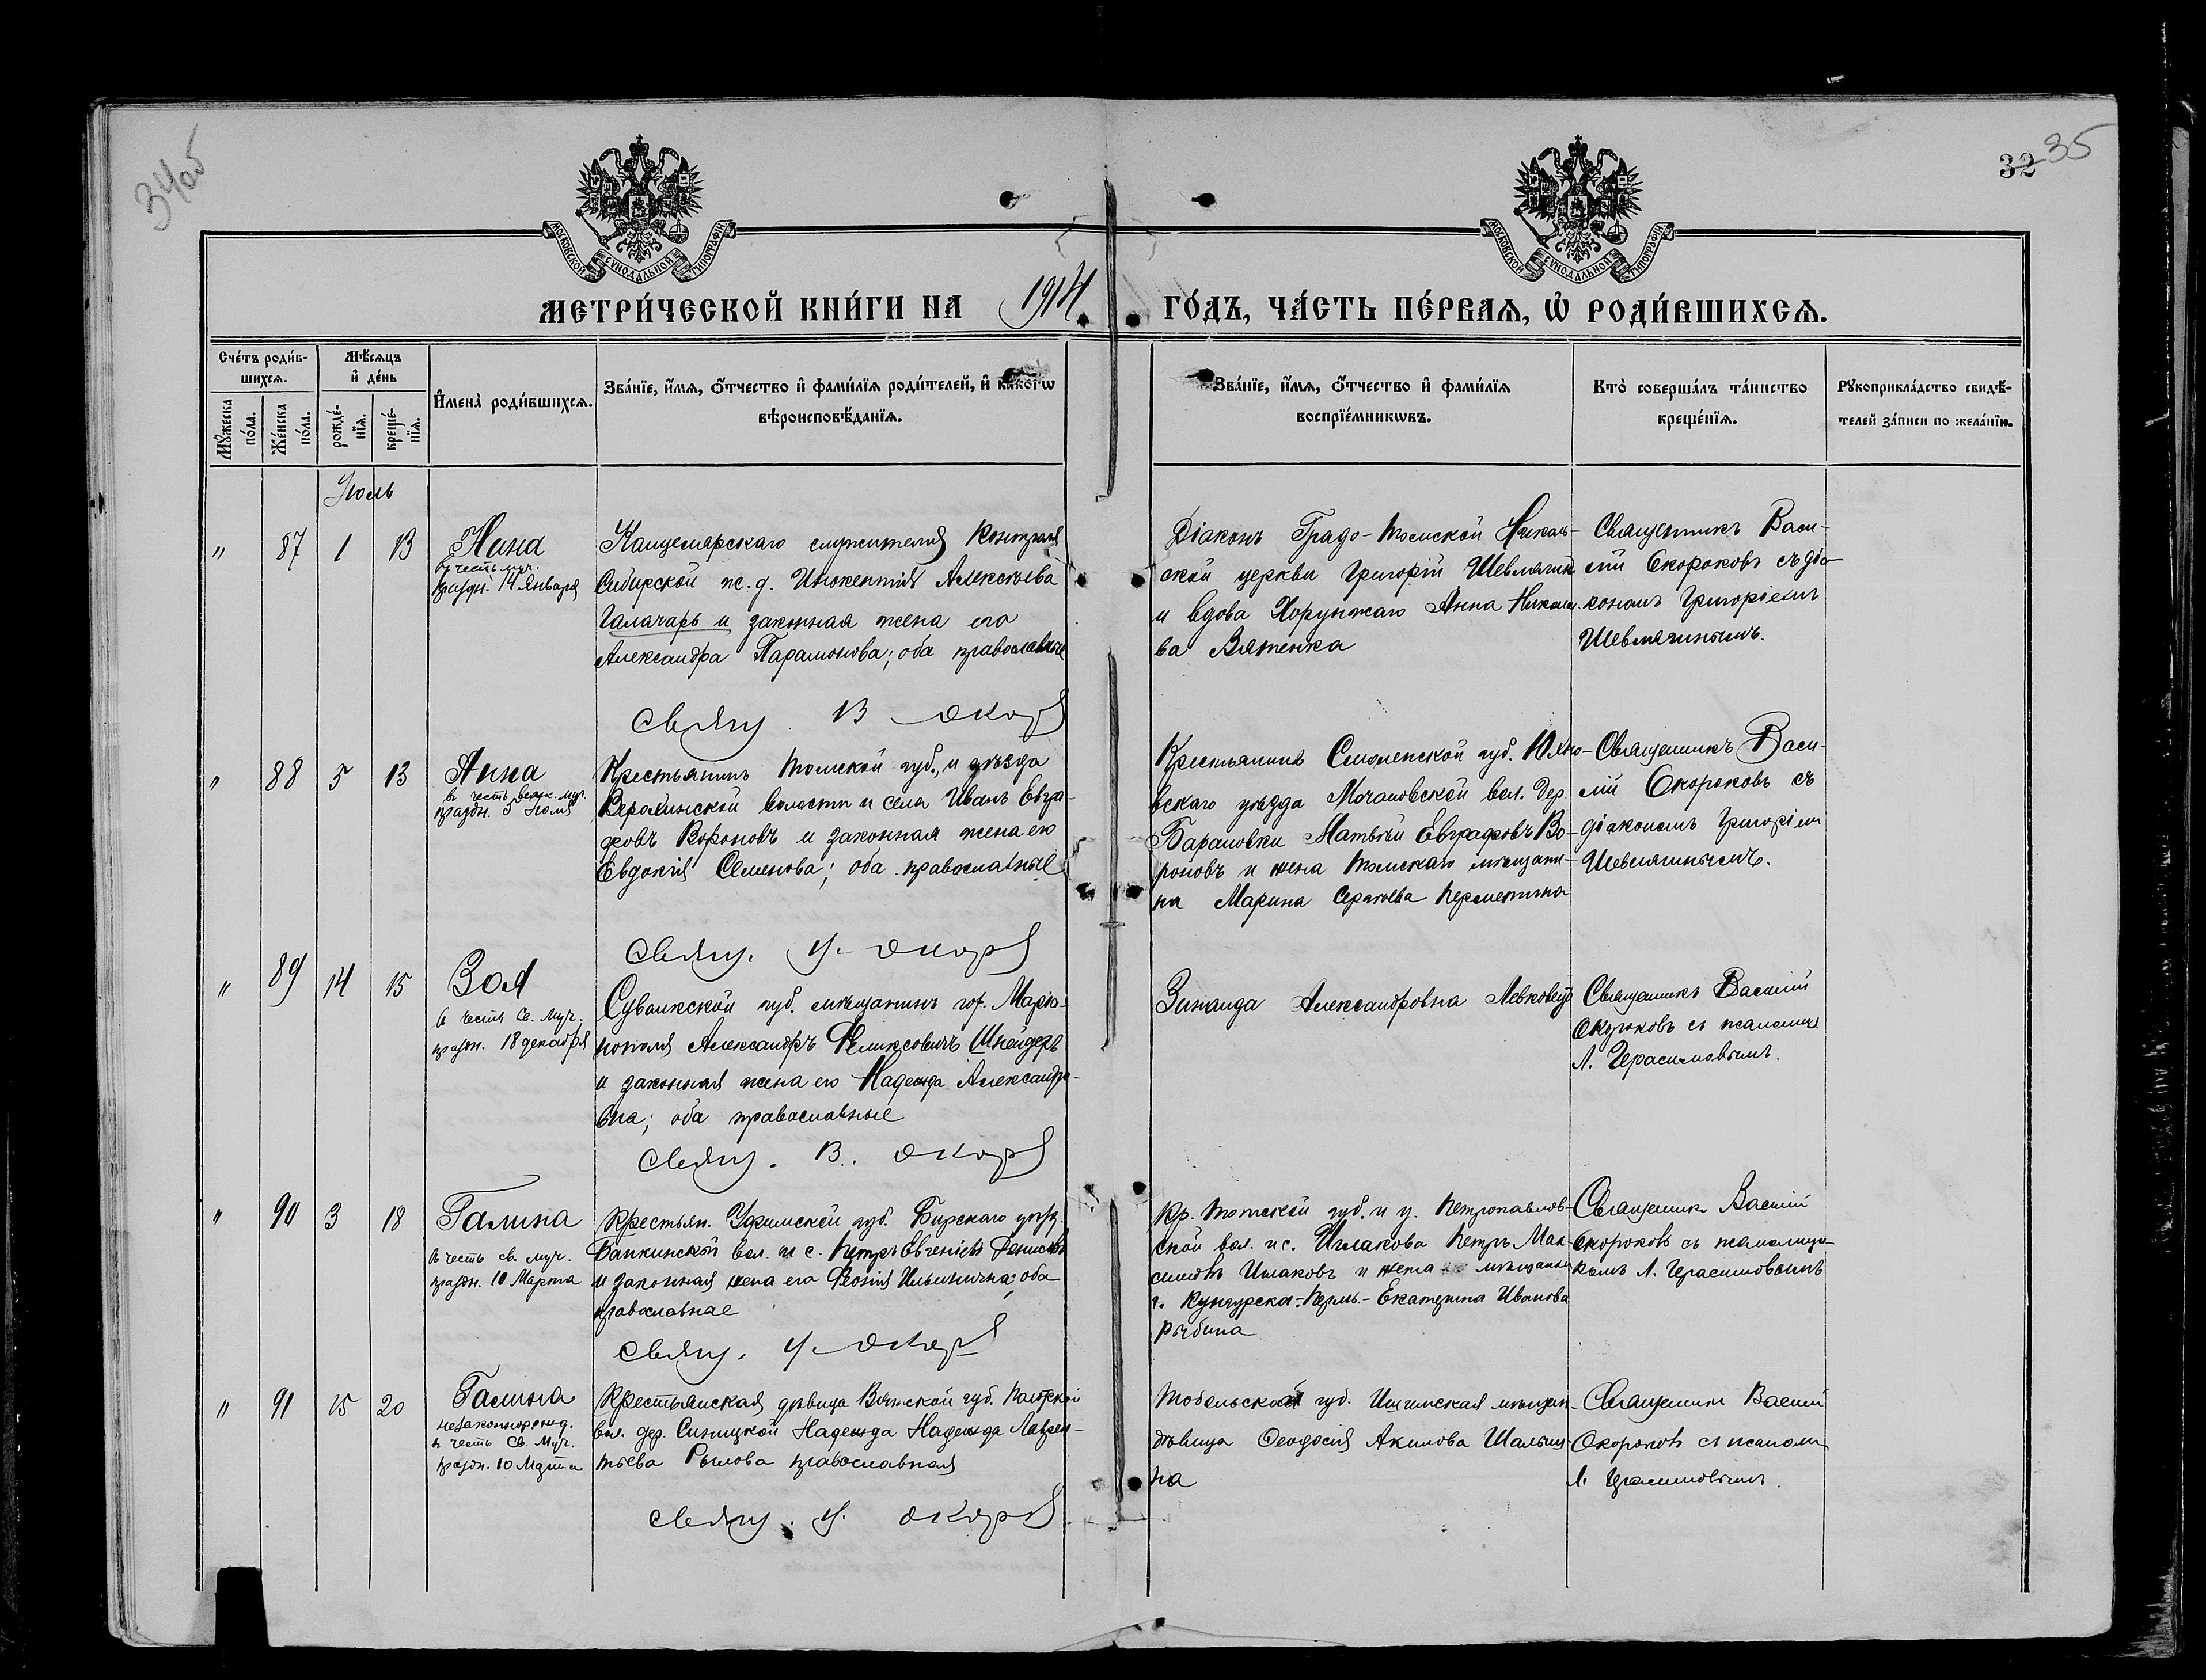 34об
32 35
МОСКОВСКОЙ СѴНОДАЛЬНОЙ ТИПОГРАФІИ
МОСКОВСКОЙ СѴНОДАЛЬНОЙ ТИПОГРАФІИ
МЕТРИ́ЧЕСКОЙ КНИ́ГИ НА 1914 ГО́ДЪ, ЧА́СТЬ ПЕ́РВАѦ, Ѽ РОДИ́ВШИХСѦ.
Сче́тъ роди́в-
шихсѧ.
Мꙋ́жеска по́ла.
Же́нска по́ла.
Мѣ́сѧцъ
и҆ де́нь
рожде́-
нїѧ.
креще́-
нїѧ.
И҆мена̀ роди́вшихсѧ.
Зва́нїе, и҆́мѧ, ѻ҆́тчество и҆ фами́лїѧ роди́телей, и҆ како́гѡ
вѣроисповѣ́данїѧ.
Зва́нїе, и҆́мѧ, ѻ҆́тчество и҆ фами́лїѧ
воспрїе́мникѡвъ.
Кто̀ соверша́лъ та́инство
креще́нїѧ.
Рꙋкоприкла́дство свидѣ́-
телей за́писи по жела́нїю.
Іюль
" 87 1 13
Нина
въ честь муч.
праздн. 14 Января
Канцелярскаго служителя Контроля
Сибирской ж. д. Инокентія Алексѣева
Галачарь и законная жена его
Александра Парамонова; оба православные
Свящ. В Окор
Діаконъ Градо-Томской Николь-
ской церкви Григорій Шевлягинъ
и вдова Хорунжаго Анна Никола-
ва Вятенка
Священникъ Васи-
лій Окороковъ съ діа-
кономъ Григоріемъ
Шевлягинымъ.
" 88 5 13
Анна
въ честь велик. муч.
праздн. 5 Іюля
Крестьянинъ Томской губ., и уѣзда
волости и села Иванъ Евгра-
фовъ Вороновъ и законная жена его
Евдокія Семенова; оба православные
Свящ. Окор
Крестьянинъ Смоленской губ. Юхно-
вскаго уѣзда Мочаловской вол. дер.
Барановки Матвѣй Евграфовъ Во-
роновъ и жена Томскаго мѣщани-
на Марина Сергѣева
Священникъ Васи-
лій Окороковъ съ
діакономъ Григоріем
Шевлягинымъ.
" 89 14 15
Зоя
въ честь св. муч.
праздн. 18 декабря
Сувалкской губ. мѣщанинъ гор. Маріа-
мполя Александръ Феликсовичъ Шнейдеръ
и законная жена его Надежда Александро-
вна; оба православные
Свящ. В. Окор
Зинаида Александровна Левковецъ
Священникъ Василій
Окороковъ съ псаломщ
Л. Герасимовымъ.
" 90 3 18
Галина
въ честь св. муч.
праздн. 10 Марта
Крестьян. Уфимской губ. Бирскаго уѣзд
вол. и с. Петръ Евгеніевъ Денисовъ
и законная жена его Ильинична; оба
православные
Свящ. Окор
Кр. Томской губ. и у. Петропавлов-
ской вол. и с. Иглакова Петръ Мак-
симовъ Иглаковъ и жена мѣщанина
г. Кунгурска-Пермь.- Екатерина Иванова
Рыбина
Священник Василій
Окороковъ съ псаломщи-
комъ Л. Герасимовымъ
" 91 15 20
Галина
незаконнорожд.
въ честь св. муч.
праздн. 10 Марта
Крестьянская дѣвица Вятской губ.
вол. дер. Синицкой Надежда Надежда Лаврен-
тьева Рылова православная
Свящ. Окор
Тобольской губ. Ишимская мѣщан-
дѣвица Феодосія Акимова
на
Священник Василій
Окороковъ съ псаломщ
Л. Герасимовымъ.